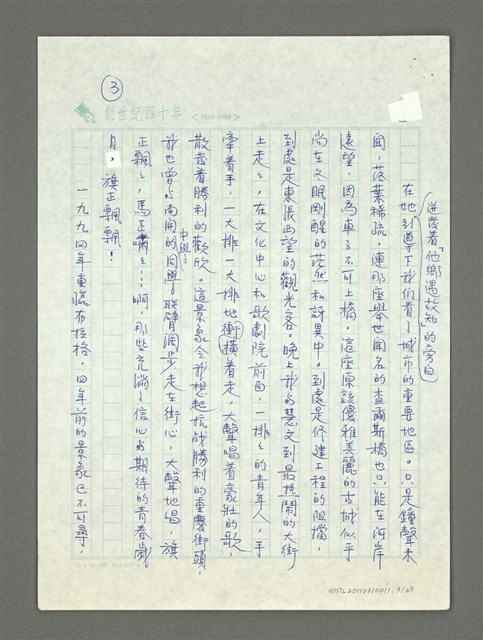 ③
創世紀四十年 <1954-1994>
迸發着「他鄉遇故知」的旁白
在她引導下我們看了城市的重要地區。只是鐘聲未
聞,落葉稀疏,連那座舉世聞名的查爾斯橋也只能在河岸
遠望,因為車子不可上橋,這座原該優雅美麗的古城似乎
尚在冬眠剛醒的茫然和訝異中。到處是修建工程的阻擋,
到處是東張西望的觀光客。晚上我與慧文到最熱鬧的大街
上走走,在文化中心和歌劇院前面,一排排的青年人,手
牽着手,一大排一大排地衝橫着走,大聲唱着豪壯的歌,
散發着勝利的歡欣。這景象令我想起抗戰勝利的重慶街頭,
我也曾與南開中學的同學聯臂闊步走在街心,大聲地唱,旗
正飄飄,馬正嘯嘯……啊,那些充滿了信心與期待的青春歲
月,旗正飄飄!
一九九四年重臨布拉格,四年前的景象已不可尋,
NMTL20110310011, 3/29